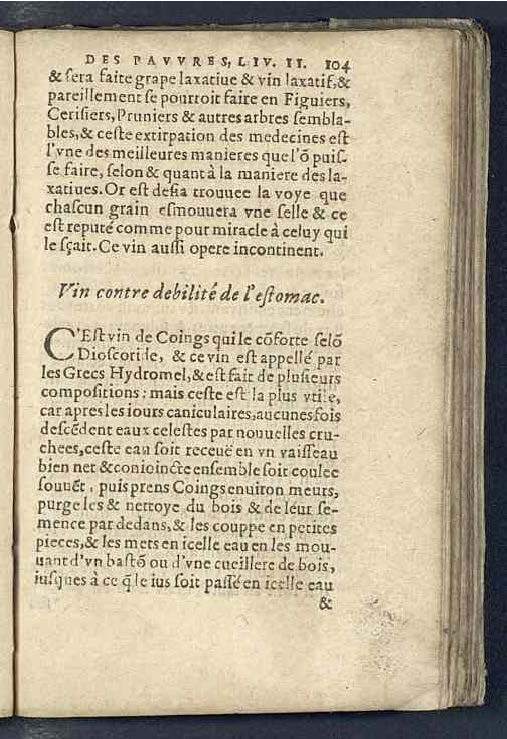 DES PAVVRES, LIV. II. 104
& sera faite grape laxatiue & vin laxatif, &
pareillement se pourroit faire en Figuiers,
Cerisiers, Pruniers & autres arbres sembla-
bles, & ceste extirpation des medecines est
l'vne des meilleures manieres que l'õ puis-
se faire, selon & quant à la maniere des la-
xatiues. Or est desia trouuee la voye que
chascun grain esmouuera vne selle & ce
est reputé comme pour miracle à celuy qui
le sçait. Ce vin aussi opere incontinent.
Vin contre debilité de l'estomac.
C'Est vin de Coings qui le cõforte selõ
Dioscoride, & ce vin est appellé par
les Grecs Hydromel, & est fait de plusieurs
compositions: mais ceste est la plus vtile,
car apres les iours caniculaires, aucunesfois
descẽdent eaux celestes par nouuelles cru-
chees, ceste eau soit receuë en vn vaisseau
bien net & conioincte ensemble soit coulee
souuẽt, puis prens Coings enuiron meurs,
purge les & nettoye du bois & de leur se-
mence par dedans, & les couppe en petites
pieces, & les mets en icelle eau en les mou-
uant d'vn bastõ ou d'vne cueillere de bois,
iusques à ce q̃ le ius soit passé en icelle eau
&